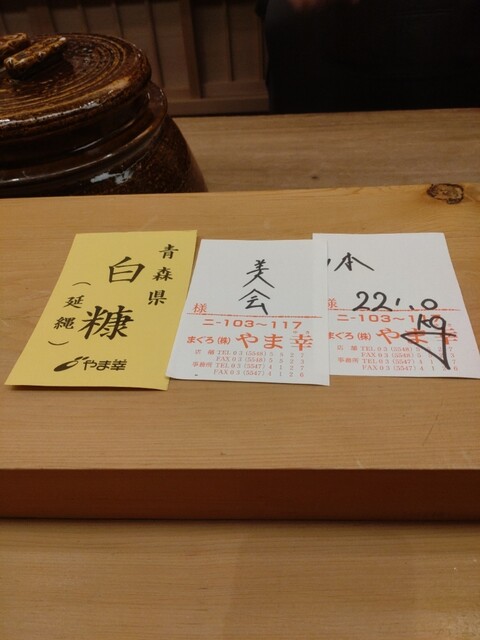 青森県
白糠
(延縄)
やま幸
美会
様
ニ-103~117
まぐろ(株)やま幸
店舗 TEL 03(5548)5427
FAX 03(5548)5523
事務所 TEL 03(5547)4127
FAX 03(5547)4176
本
様
221.0
kg
まぐろ(株)やま
店舗 TEL 03(5548)5427
FAX 03(5548)5523
事務所 TEL 03(5547)4127
FAX 03(5547)4176